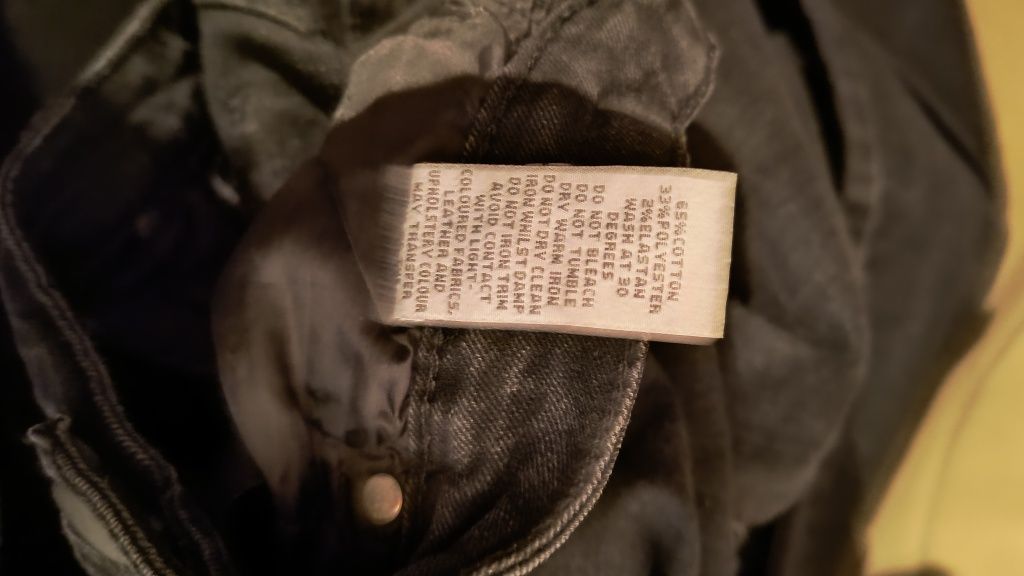 65%COTTON
33%POLYESTER
2%ELASTAN
WASH AT 30
DEGREES
DO NOT BLEACH
DO NOT TUMBLE
DRY WARM IRON
DO NOT DRY CLEAN
IRON WHILST DAMP
DO NOT IRON TRIM
AVOID CONTACT
WITH LIGHT-
COLOURED FABRICS,
LEATHER AND
UPHOLSTERY COLOUR
MAY TRANSFER